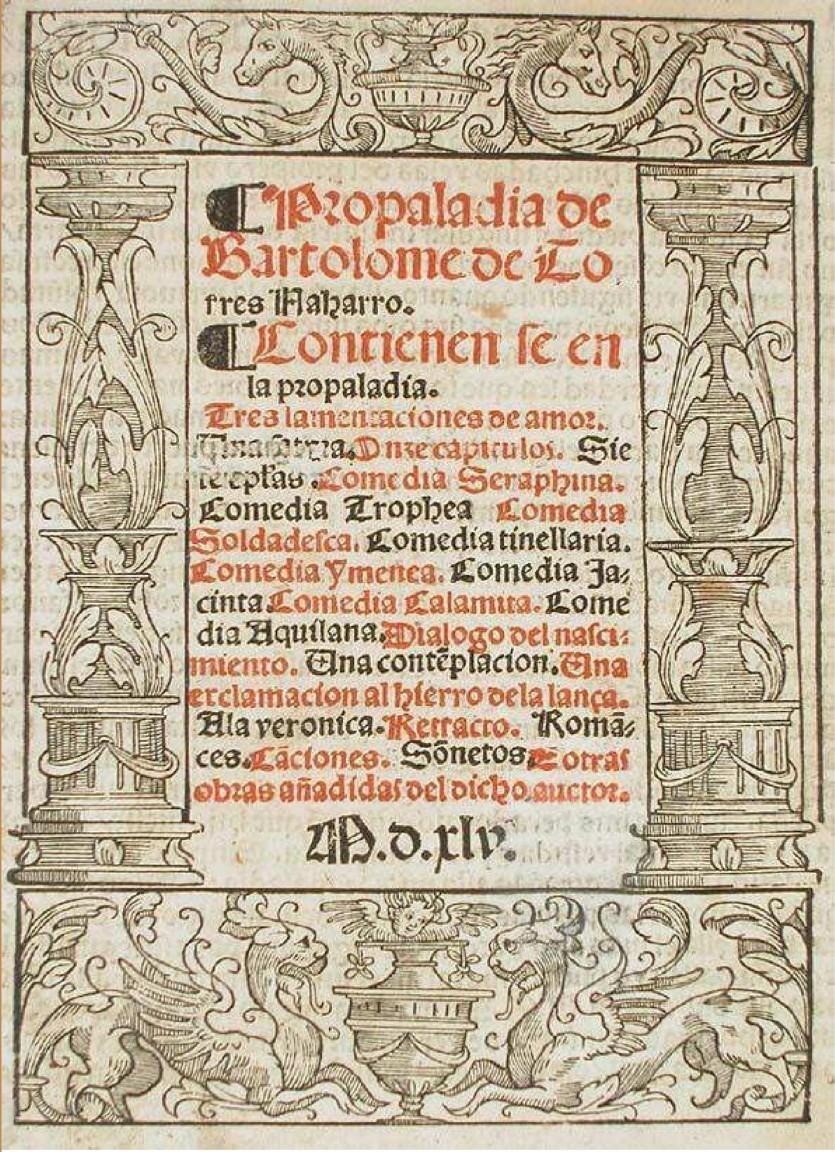 ¶ Propaladia de
Bartolome de To
rres Naharro.
¶ Contienen se en
la propaladia.
Tres lamentaciones de amor.
Una satyra. Onze capitulos. Sie
te epl̃as. Comedia Seraphina.
Comedia Trophea Comedia
Soldadesca. Comedia tinellaria.
Comedia Ymenea. Comedia Ja⸗
cinta. Comedia Calamita. Come
dia Aquilana. Dialogo del nasci⸗
miento. Una contẽplacion. Una
exclamacion al hierro dela lança.
A la veronica. Retracto. Romã⸗
ces. Cãciones. Sõnetos. E otras
obras añadidas del dicho auctor.
M.d.xlv.